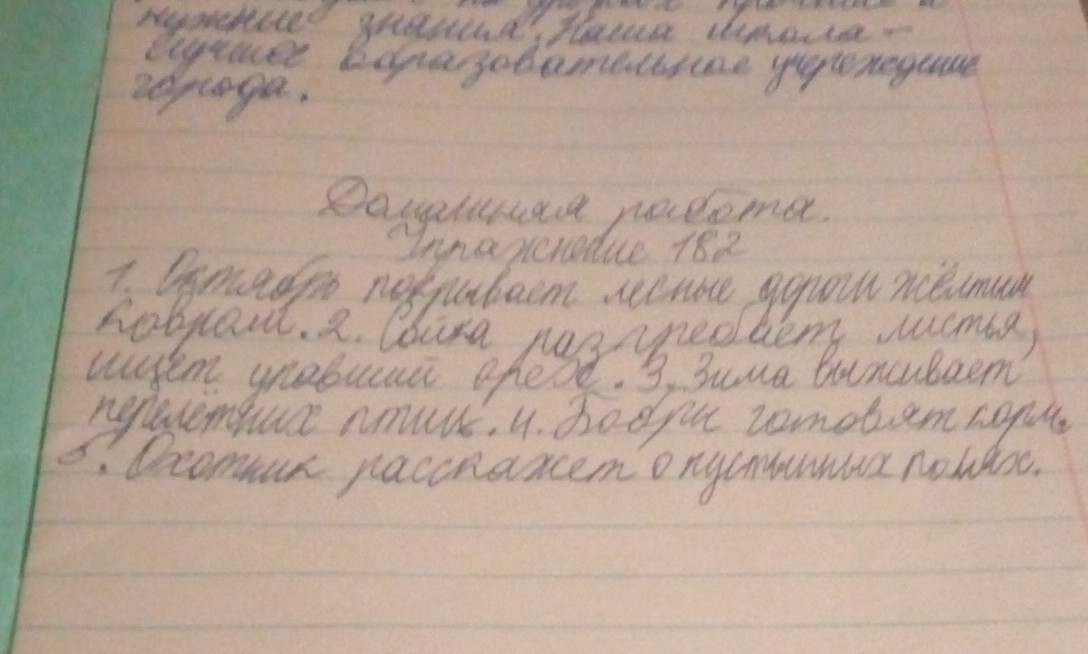 нужные знания. Наша школа –
лучшее образовательное учереждение
города.
Домашняя работа.
Упражнение 182
1. Октябрь покрывает лесные дороги жёлтым
ковром. 2. Сойка разгребает листья,
ищет упавший орех. 3. Зима выживает
перелётных птиц. 4. Бобры готовят корм.
5. Охотник расскажет о пустынных полях.